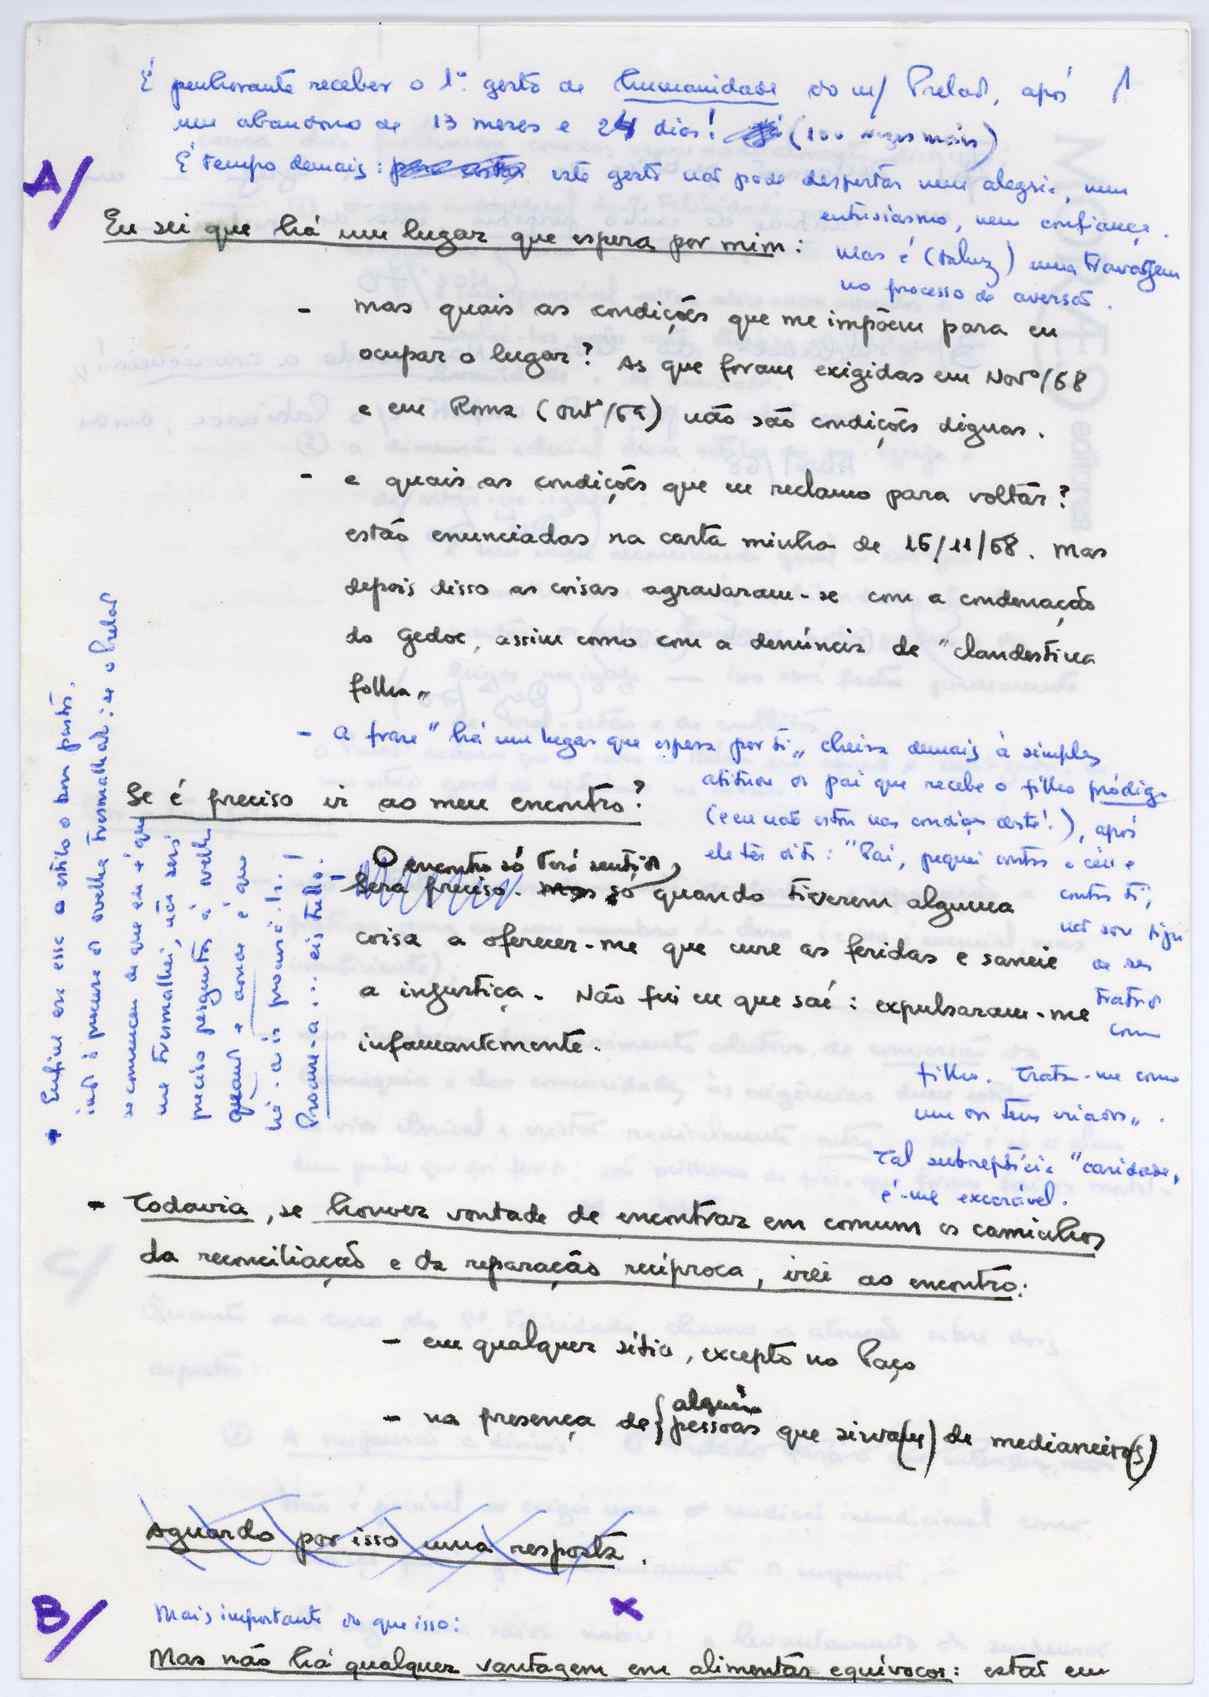 É penhorante receber o 1º gesto de humanidade do m/ Prelado, após
um abandono de 13 meses e 24 dias! (100 vezes mais)
É tempo demais: este gesto não pode despertar nem alegria, nem
entusiasmo, nem confiança.
mas é (talvez) uma travagem
no processo de aversão.
1
A/
Eu sei que há um lugar que espera por mim:
- mas quais as condições que me impõem para eu
ocupar o lugar? As que foram exigidas em Novº/68
e em Roma (outº/69) não são condições dignas.
- e quais as condições que eu reclamo para voltar?
estão enunciadas na carta minha de 16/11/68. Mas
depois disso as coisas agravaram-se com a condenação
do Gedoc, assim como com a denúncia de "clandestina
folha"
- A frase "há um lugar que espera por ti" cheira demais à simples
atitude do pai que recebe o filho pródigo
(e eu não estou nas condições deste!), após
ele ter dito: "Pai, pequei contra o céu e
contra ti,
não sou digno
de ser
tratado
como
filho. Trata-me como
um dos teus criados".
Tal subreptícia "caridade"
é-me execrável.
Se é preciso ir ao meu encontro?
O encontro só terá sentido,
Será preciso. Mas só quando tiverem alguma
coisa a oferecer-me que cure as feridas e saneie
a injustiça. Não fui eu que saí: expulsaram-me
infamantemente.
Enfim esse o estilo o bom pastor,
indo à procura da ovelha tresmalhada: se o Prelado
se convenceu de que eu é que
me tresmalhei, não será
preciso perguntar à ovelha
quando e aonde é que
há-de ir procurá-la.
Procure-a... eis tudo!
- Todavia, se houver vontade de encontrar em comum os caminhos
da reconciliação e da reparação recíproca, irei ao encontro:
- em qualquer sítio, excepto no Paço
- na presença de { alguém
pessoas que sirva(m) de medianeiro(s)
Aguardo por isso uma resposta.
B/
Mais importante do que isso:
x
Mas não há qualquer vantagem em alimentar equívocos: estar em